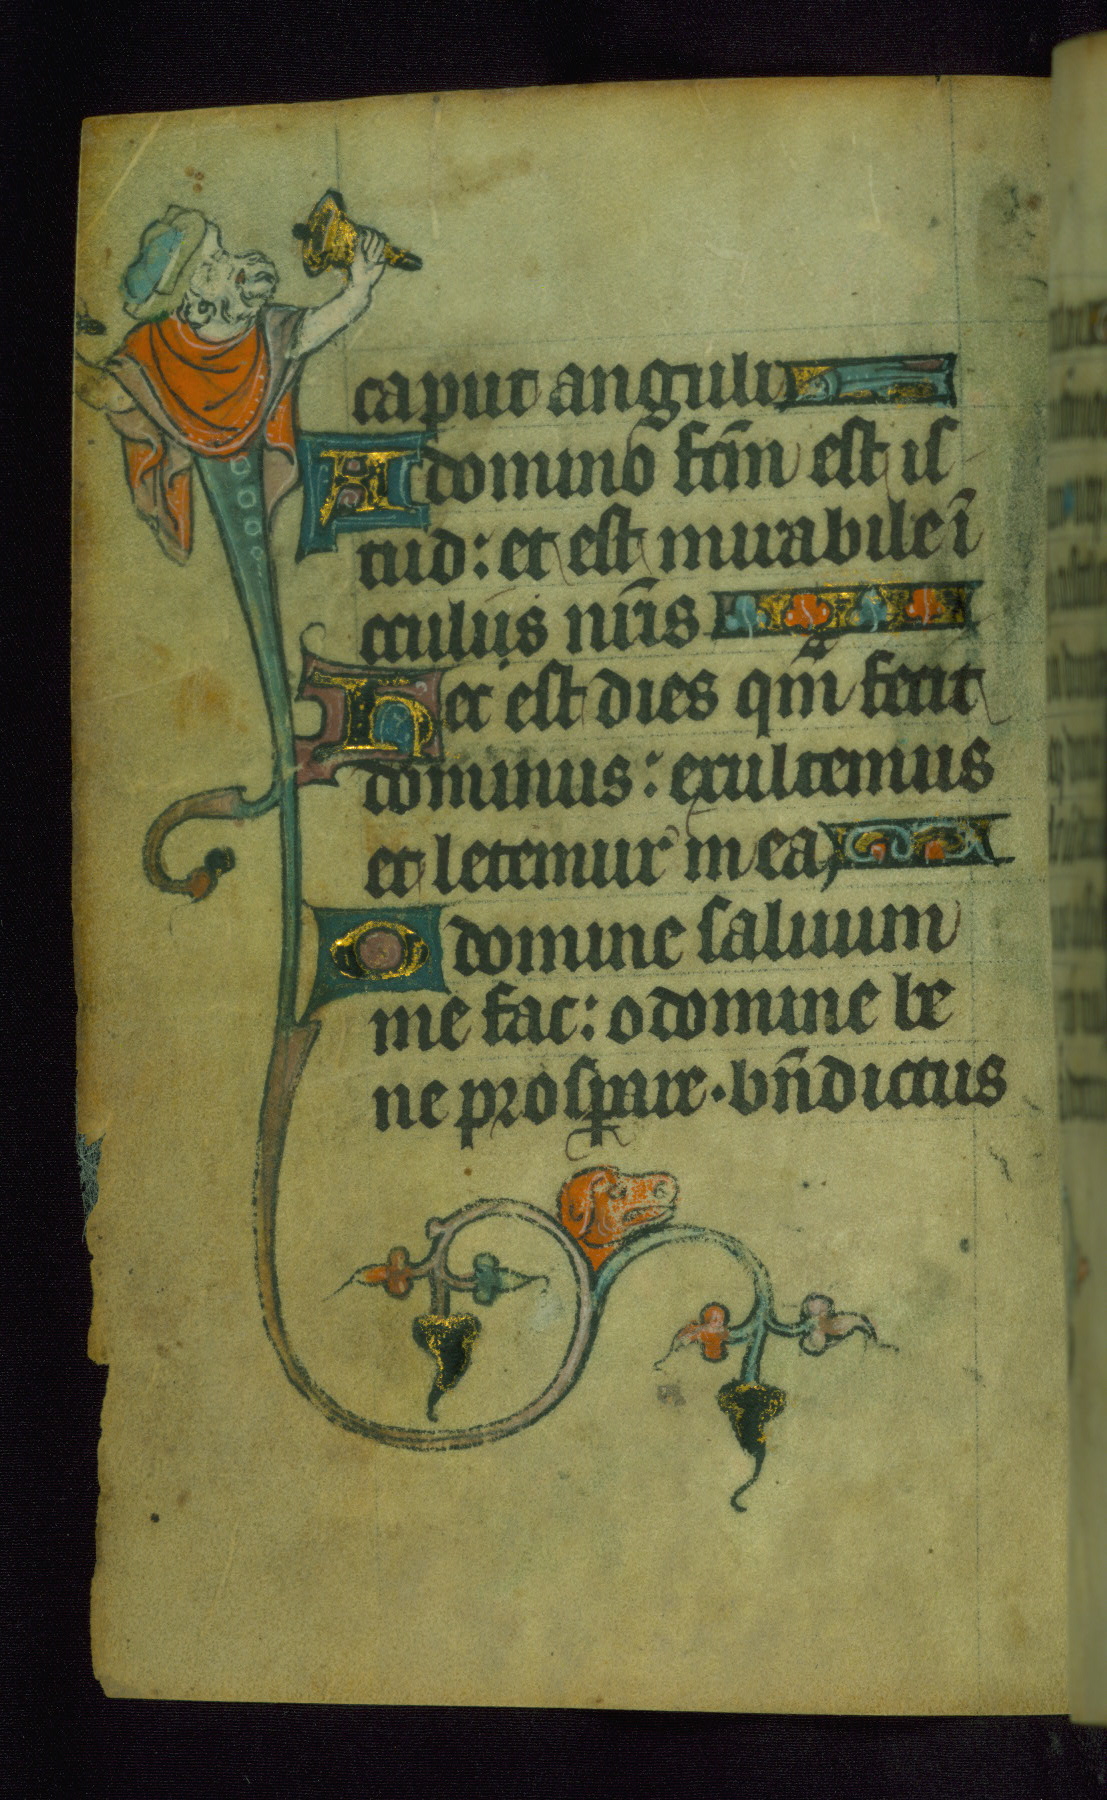 caput anguli
A domino fc̄m est is
tud: et est mirabile ī
oculis nr̄is
Hec est dies qm̄ fecit
dominus: exultemus
et letemur in ea
O domine saluum
me fac: o domine be
ne prosꝑare. bn̄dictus